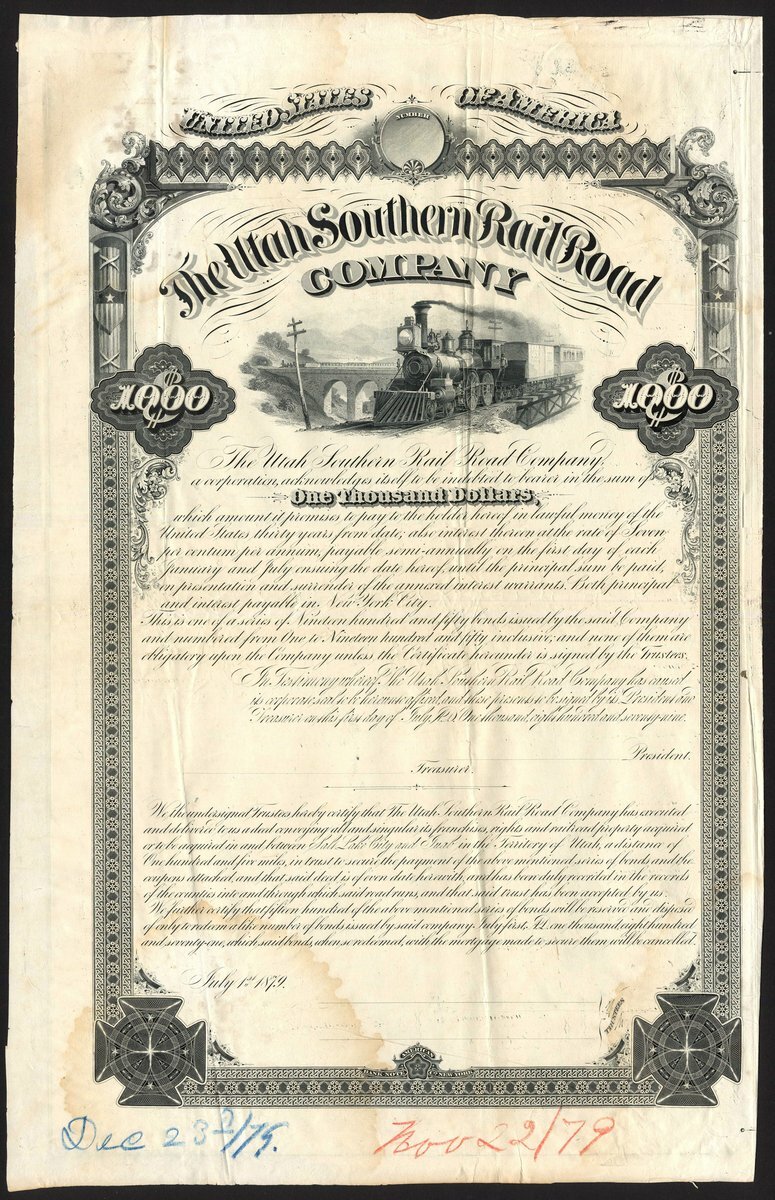 UNITED STATES OF AMERICA
NUMBER
The Utah Southern Rail Road
COMPANY
$1000 $1000
The Utah Southern Rail Road Company,
a corporation, acknowledges itself to be indebted to bearer in the sum of
One Thousand Dollars,
which amount it promises to pay to the holder hereof in lawful money of the
United States thirty years from date; also interest thereon at the rate of Seven
per centum per annum, payable semi-annually on the first day of each
January and July ensuing the date hereof, until the principal sum be paid,
on presentation and surrender of the annexed interest warrants. Both principal
and interest payable in New York City.
This is one of a series of Nineteen hundred and fifty bonds issued by the said Company
and numbered from One to Nineteen hundred and fifty inclusive; and none of them are
obligatory upon the Company unless the Certificate hereunder is signed by the Trustees.
In Testimony whereof The Utah Southern Rail Road Company has caused
its corporate seal to be hereunto affixed, and these presents to be signed by its President and
Treasurer on this first day of July, A.D. One thousand, eight hundred and seventy-nine.
President.
Treasurer.
We the undersigned Trustees hereby certify that The Utah Southern Rail Road Company has executed
and delivered to us a deed conveying all and singular its franchises, rights and railroad property acquired
or to be acquired in and between Salt Lake City and Juab in the Territory of Utah, a distance of
One hundred and five miles, in trust to secure the payment of the above mentioned series of bonds and the
coupons attached, and that said deed is of even date herewith, and has been duly recorded in the records
of the counties into and through which said road runs, and that said trust has been accepted by us.
We further certify that fifteen hundred of the above mentioned series of bonds will be reserved and disposed
of only to redeem a like number of bonds issued by said company July first, A.D. one thousand eight hundred
and seventy-one, which said bonds, when so redeemed, with the mortgage made to secure them will be cancelled.
July 1st 1879.
TRUSTEES
AMERICAN
BANK NOTE CO. NEW YORK
Dec 23 2/79.
Nov 22/79